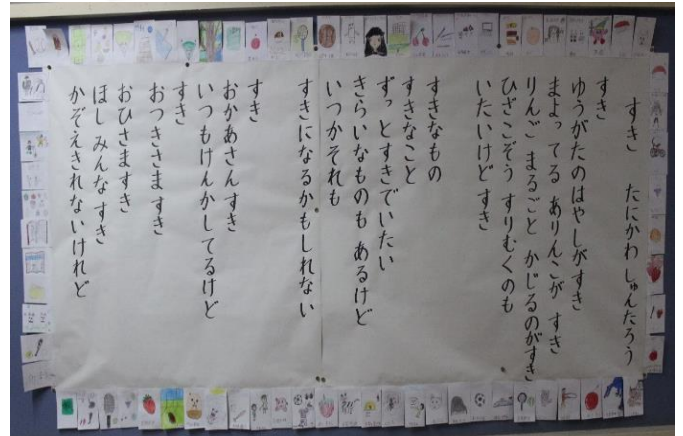 すき　たにかわ しゅんたろう
すき
ゆうがたのはやしがすき
まよってる ありんこが すき
りんご まるごと かじるのがすき
ひざこぞう すりむくのも
いたいけど すき
すきなもの
すきなこと
ずっとすきでいたい
きらいなものも あるけど
いつかそれも
すきになるかもしれない
すき
おかあさん すき
いつもけんかしてるけど
すき
おつきさま すき
おひさま すき
ほし みんな すき
かぞえきれないけれど